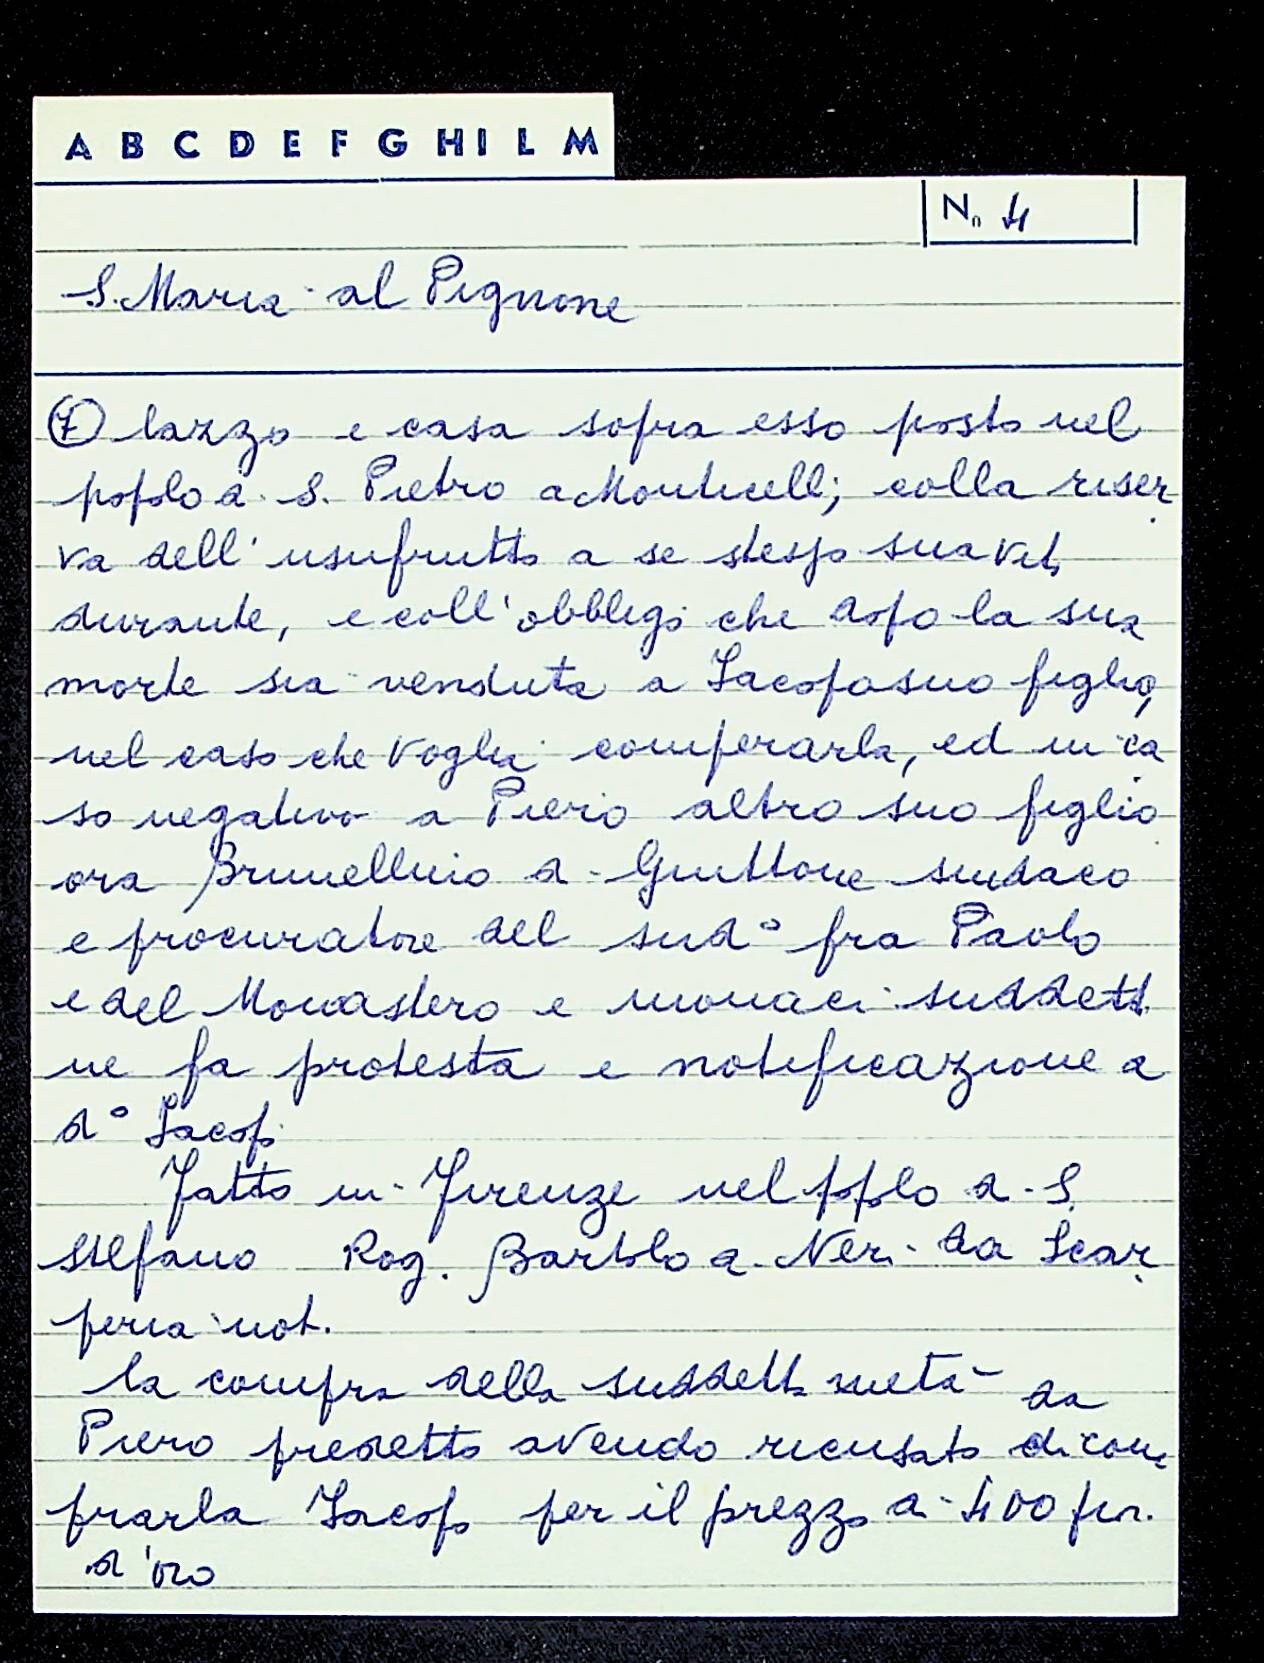 A B C D E F G H I L M
N. 4
S. Maria al Pignone
⑦ lazzo e casa sopra esso posto nel
popolo di S. Pietro a Monticelli; colla riser
va dell'usufrutto a se stesso sua vita
durante, e coll'obbligo che dopo la sua
morte sia venduta a Iacopo suo figlio,
nel caso che voglia comperarla, ed in ca
so negativo a Piero altro suo figlio
ora Brunelluio di Guittone sindaco
e procuratore del sud° fra Paolo
e del Monastero e monaci suddetti
ne fa protesta e notificazione a
d° Iacopo
Fatto in Firenze nel popolo di S.
Stefano Rog. Bartolo di Neri da Scar
peria not.
la compra della suddetta metà da
Piero predetto avendo ricusato di com
prarla Iacopo per il prezzo di 400 fior.
d'oro